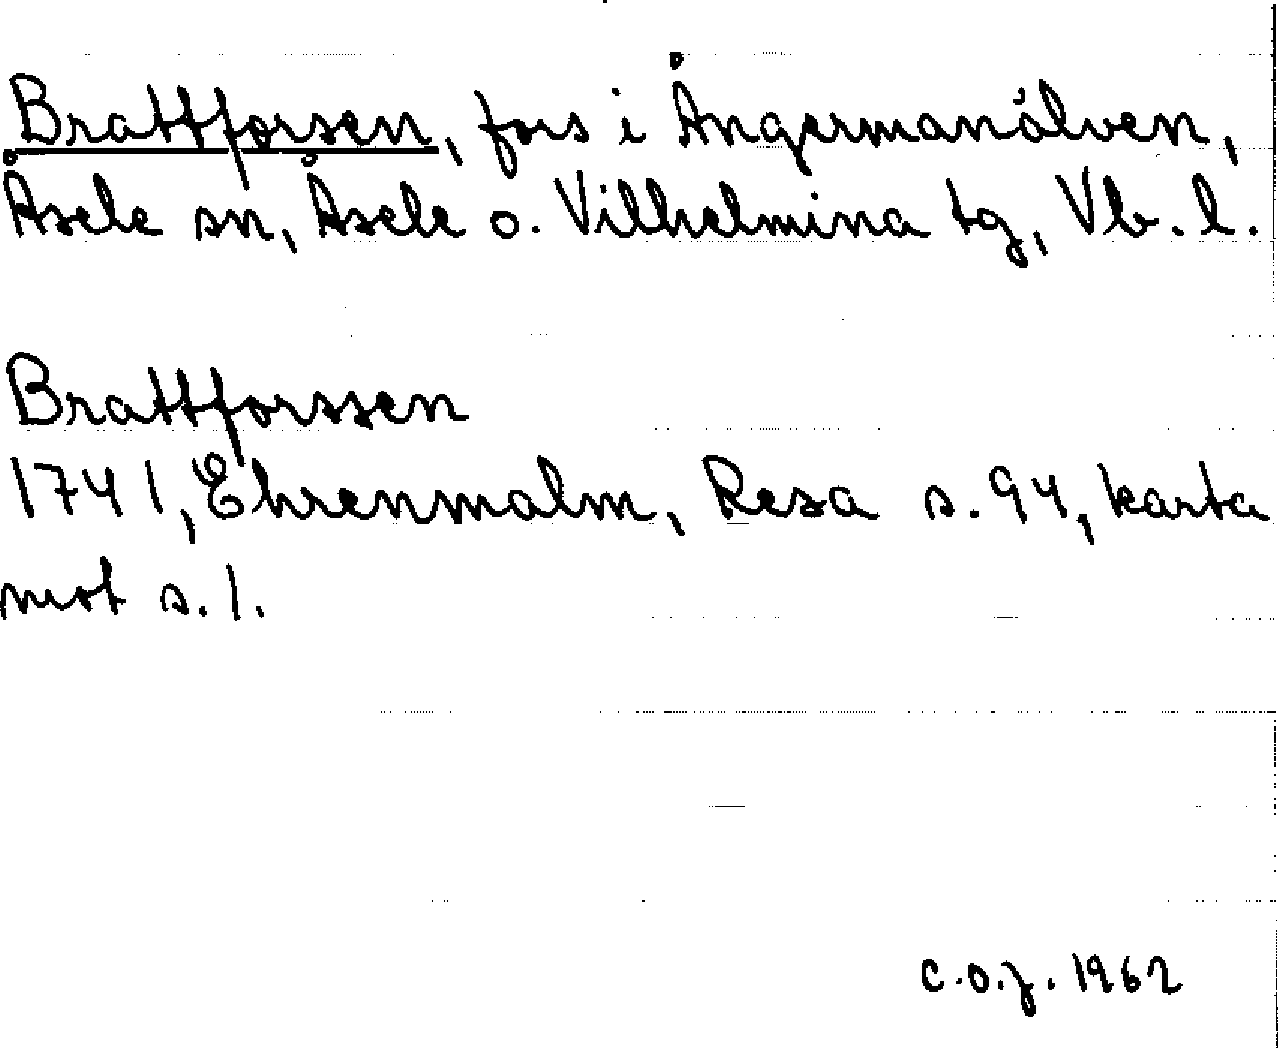 Brattforsen, fors i Ångermanälven,
Åsele sn, Åsele o. Vilhelmina tg, Vb. l.
Brattforssen
1741, Ehrenmalm, Resa s. 94, karta
mot s. 1.
C.O.J. 1962